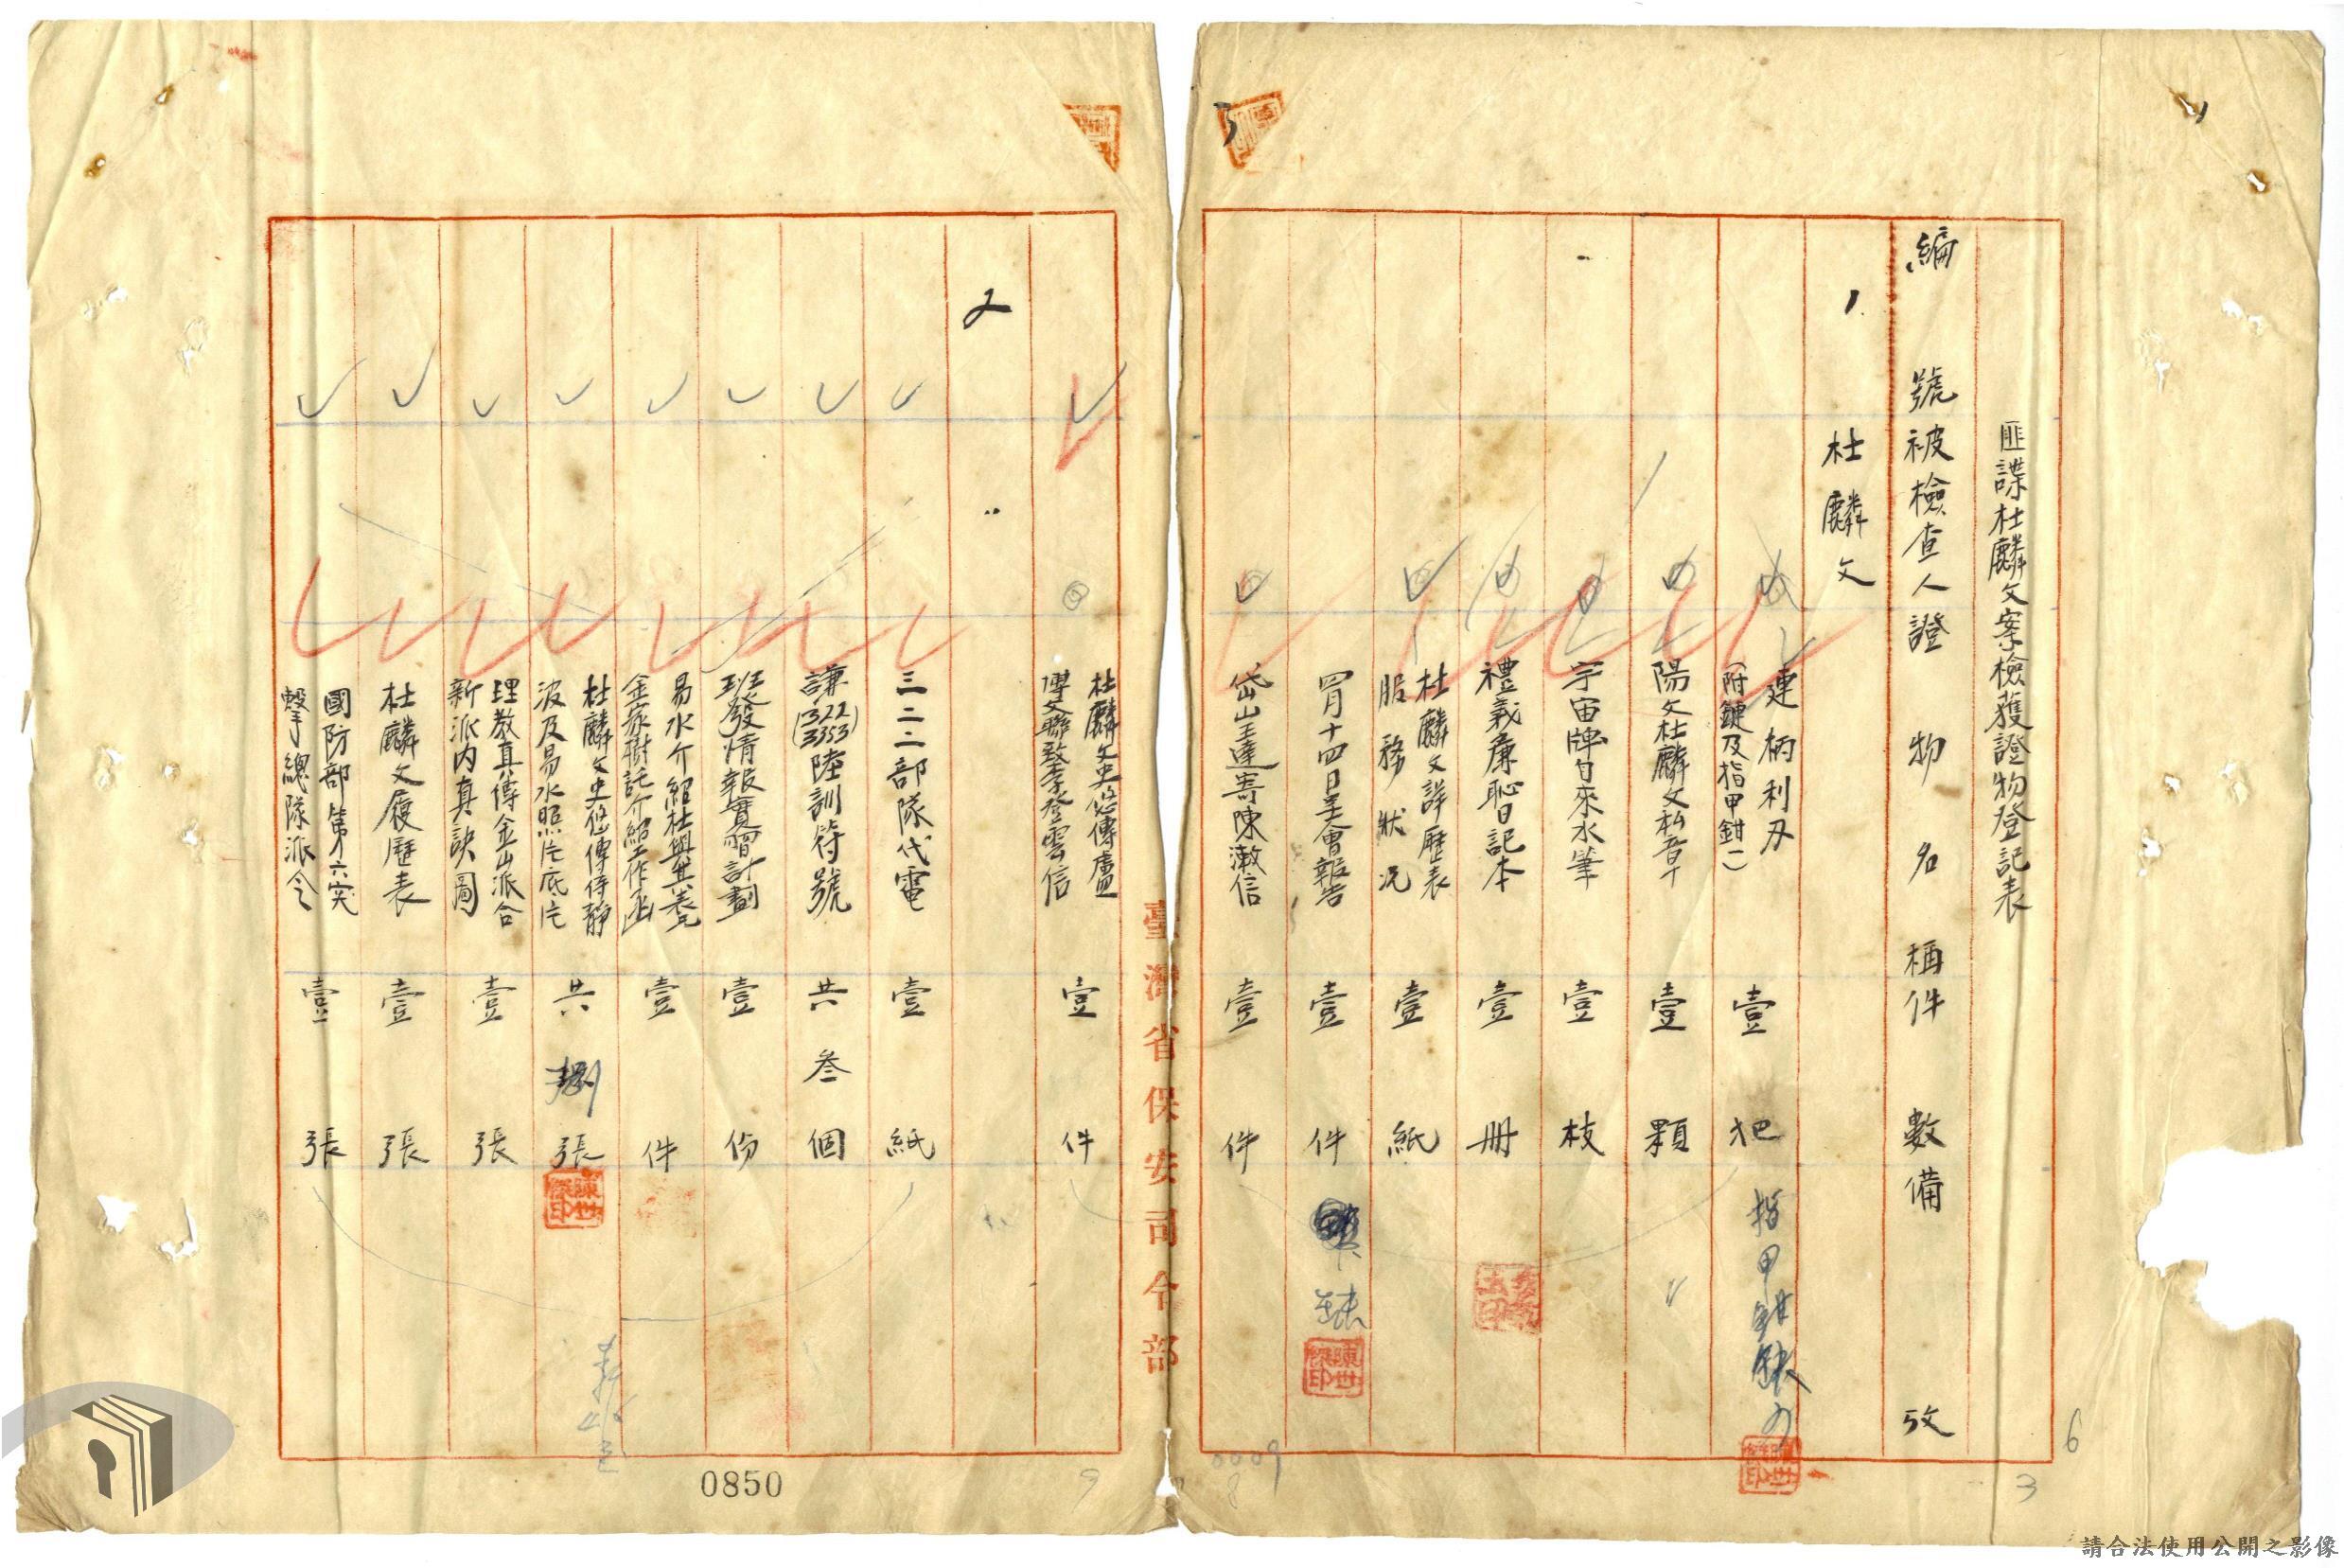 匪諜杜麟文案檢獲證物登記表
編號 被檢查人 證物名稱 件數 備攷
1
杜麟文
連柄利刃
(附鏈及指甲鉗一)
壹把
指甲鉗
陽文杜麟文私章
壹顆
宇宙牌自來水筆
壹枝
禮義廉恥日記本
壹冊
杜麟文詳歷表
服務狀況
壹紙
四月十四日呈會報告
壹件
缺
岱山王達寄陳漱信
壹件
臺灣省保安司令部
杜麟文史悠傳盧
博文聯致李登雲信
壹件
2
〃
三二二部隊代電
壹紙
謙(322)
(3353)陸訓符號
共叁個
班發情報實習計劃
壹份
易水介紹杜與
壹件
杜麟文史悠傳傅靜
波及易水照片底片
共捌張
理教真傳金山派合
新派內真訣圖
壹張
杜麟文履歷表
壹張
國防部第六突
擊總隊派令
壹張
陳世傑印
0850
0009
8
9
3
6
請合法使用公開之影像